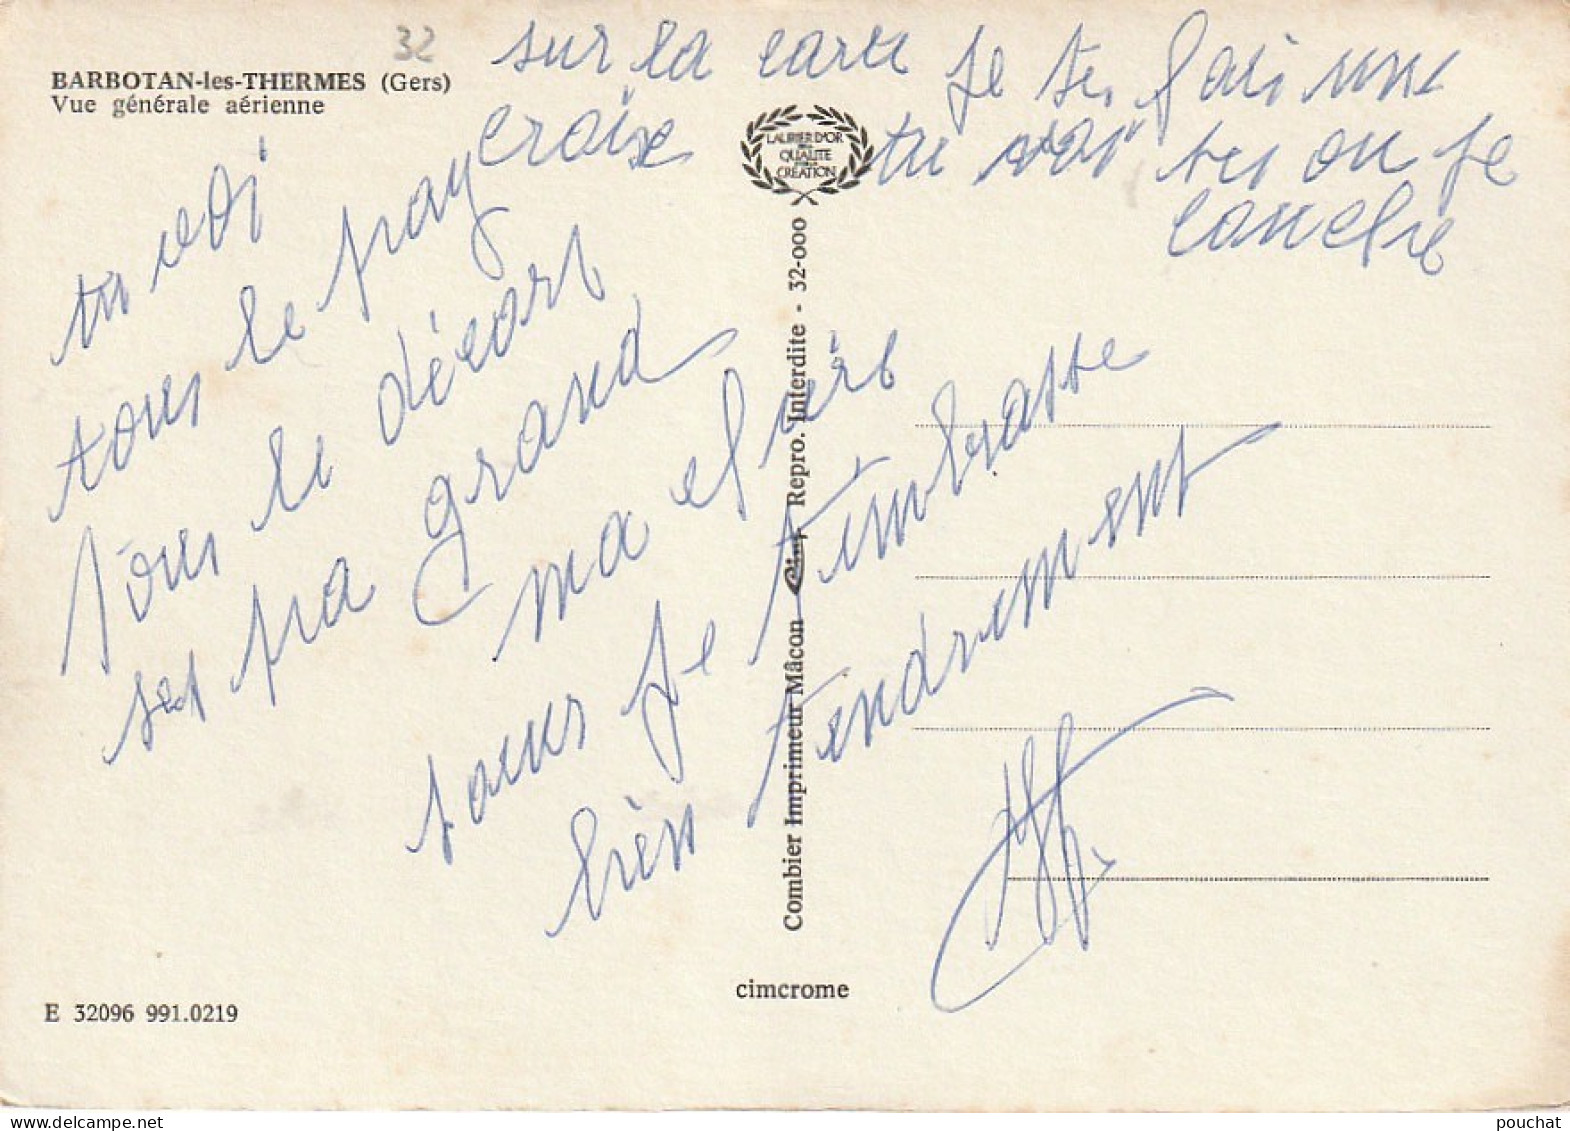 32
BARBOTAN-les-THERMES (Gers)
Vue générale aérienne
sur la carte je te fais une
croise tu voi ses ou je
couche
tu voi
tous le pay
tous le décors
ses pa grand
ma chère
soeur je t'embrasse
bien tendrement
LAURIER D'OR
QUALITE
CREATION
Combier Imprimeur Mâcon Repro. Interdite - 32-000
cimcrome
E 32096 991.0219
pouchat